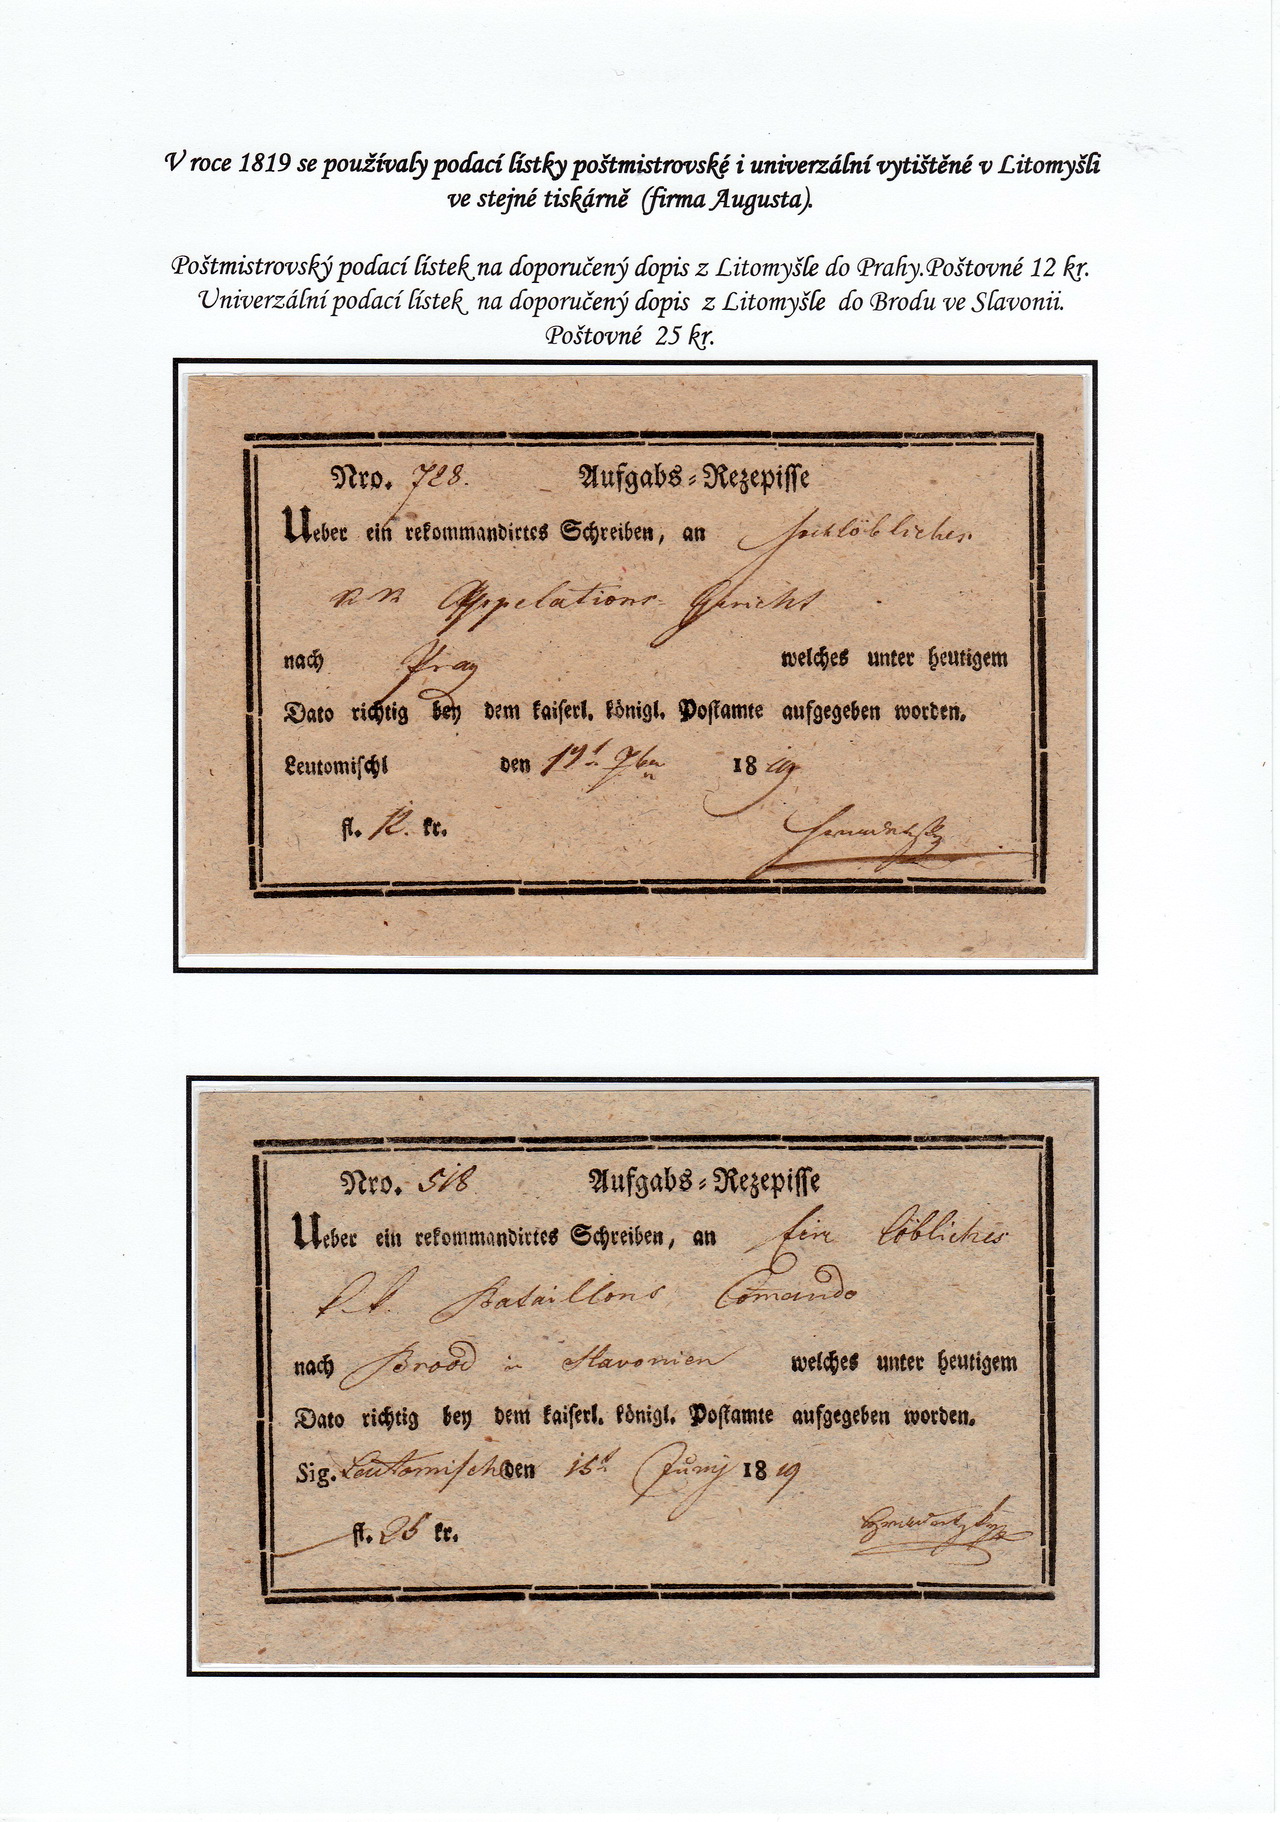 V roce 1819 se používaly podací lístky poštmistrovské i univerzální vytištěné v Litomyšli
ve stejné tiskárně (firma Augusta).
Poštmistrovský podací lístek na doporučený dopis z Litomyšle do Prahy.Poštovné 12 kr.
Univerzální podací lístek na doporučený dopis z Litomyšle do Brodu ve Slavonii.
Poštovné 25 kr.
Nro. 728. Aufgabs-Rezepisse
Ueber ein rekommandirtes Schreiben, an hochlöbliches
KK Appelations- Gericht
nach Prag welches unter heutigem
Dato richtig bey dem kaiserl. königl. Postamte aufgegeben worden.
Leutomischl den 7ber 1819
fl. 12. kr.
Nro. 518 Aufgabs-Rezepisse
Ueber ein rekommandirtes Schreiben, an Ein löbliches
k.k. Bataillons Comando
nach Brood in Slavonien welches unter heutigem
Dato richtig bey dem kaiserl. königl. Postamte aufgegeben worden.
Sig. Leutomischl den 15t Juny 1819
fl. 25 kr.